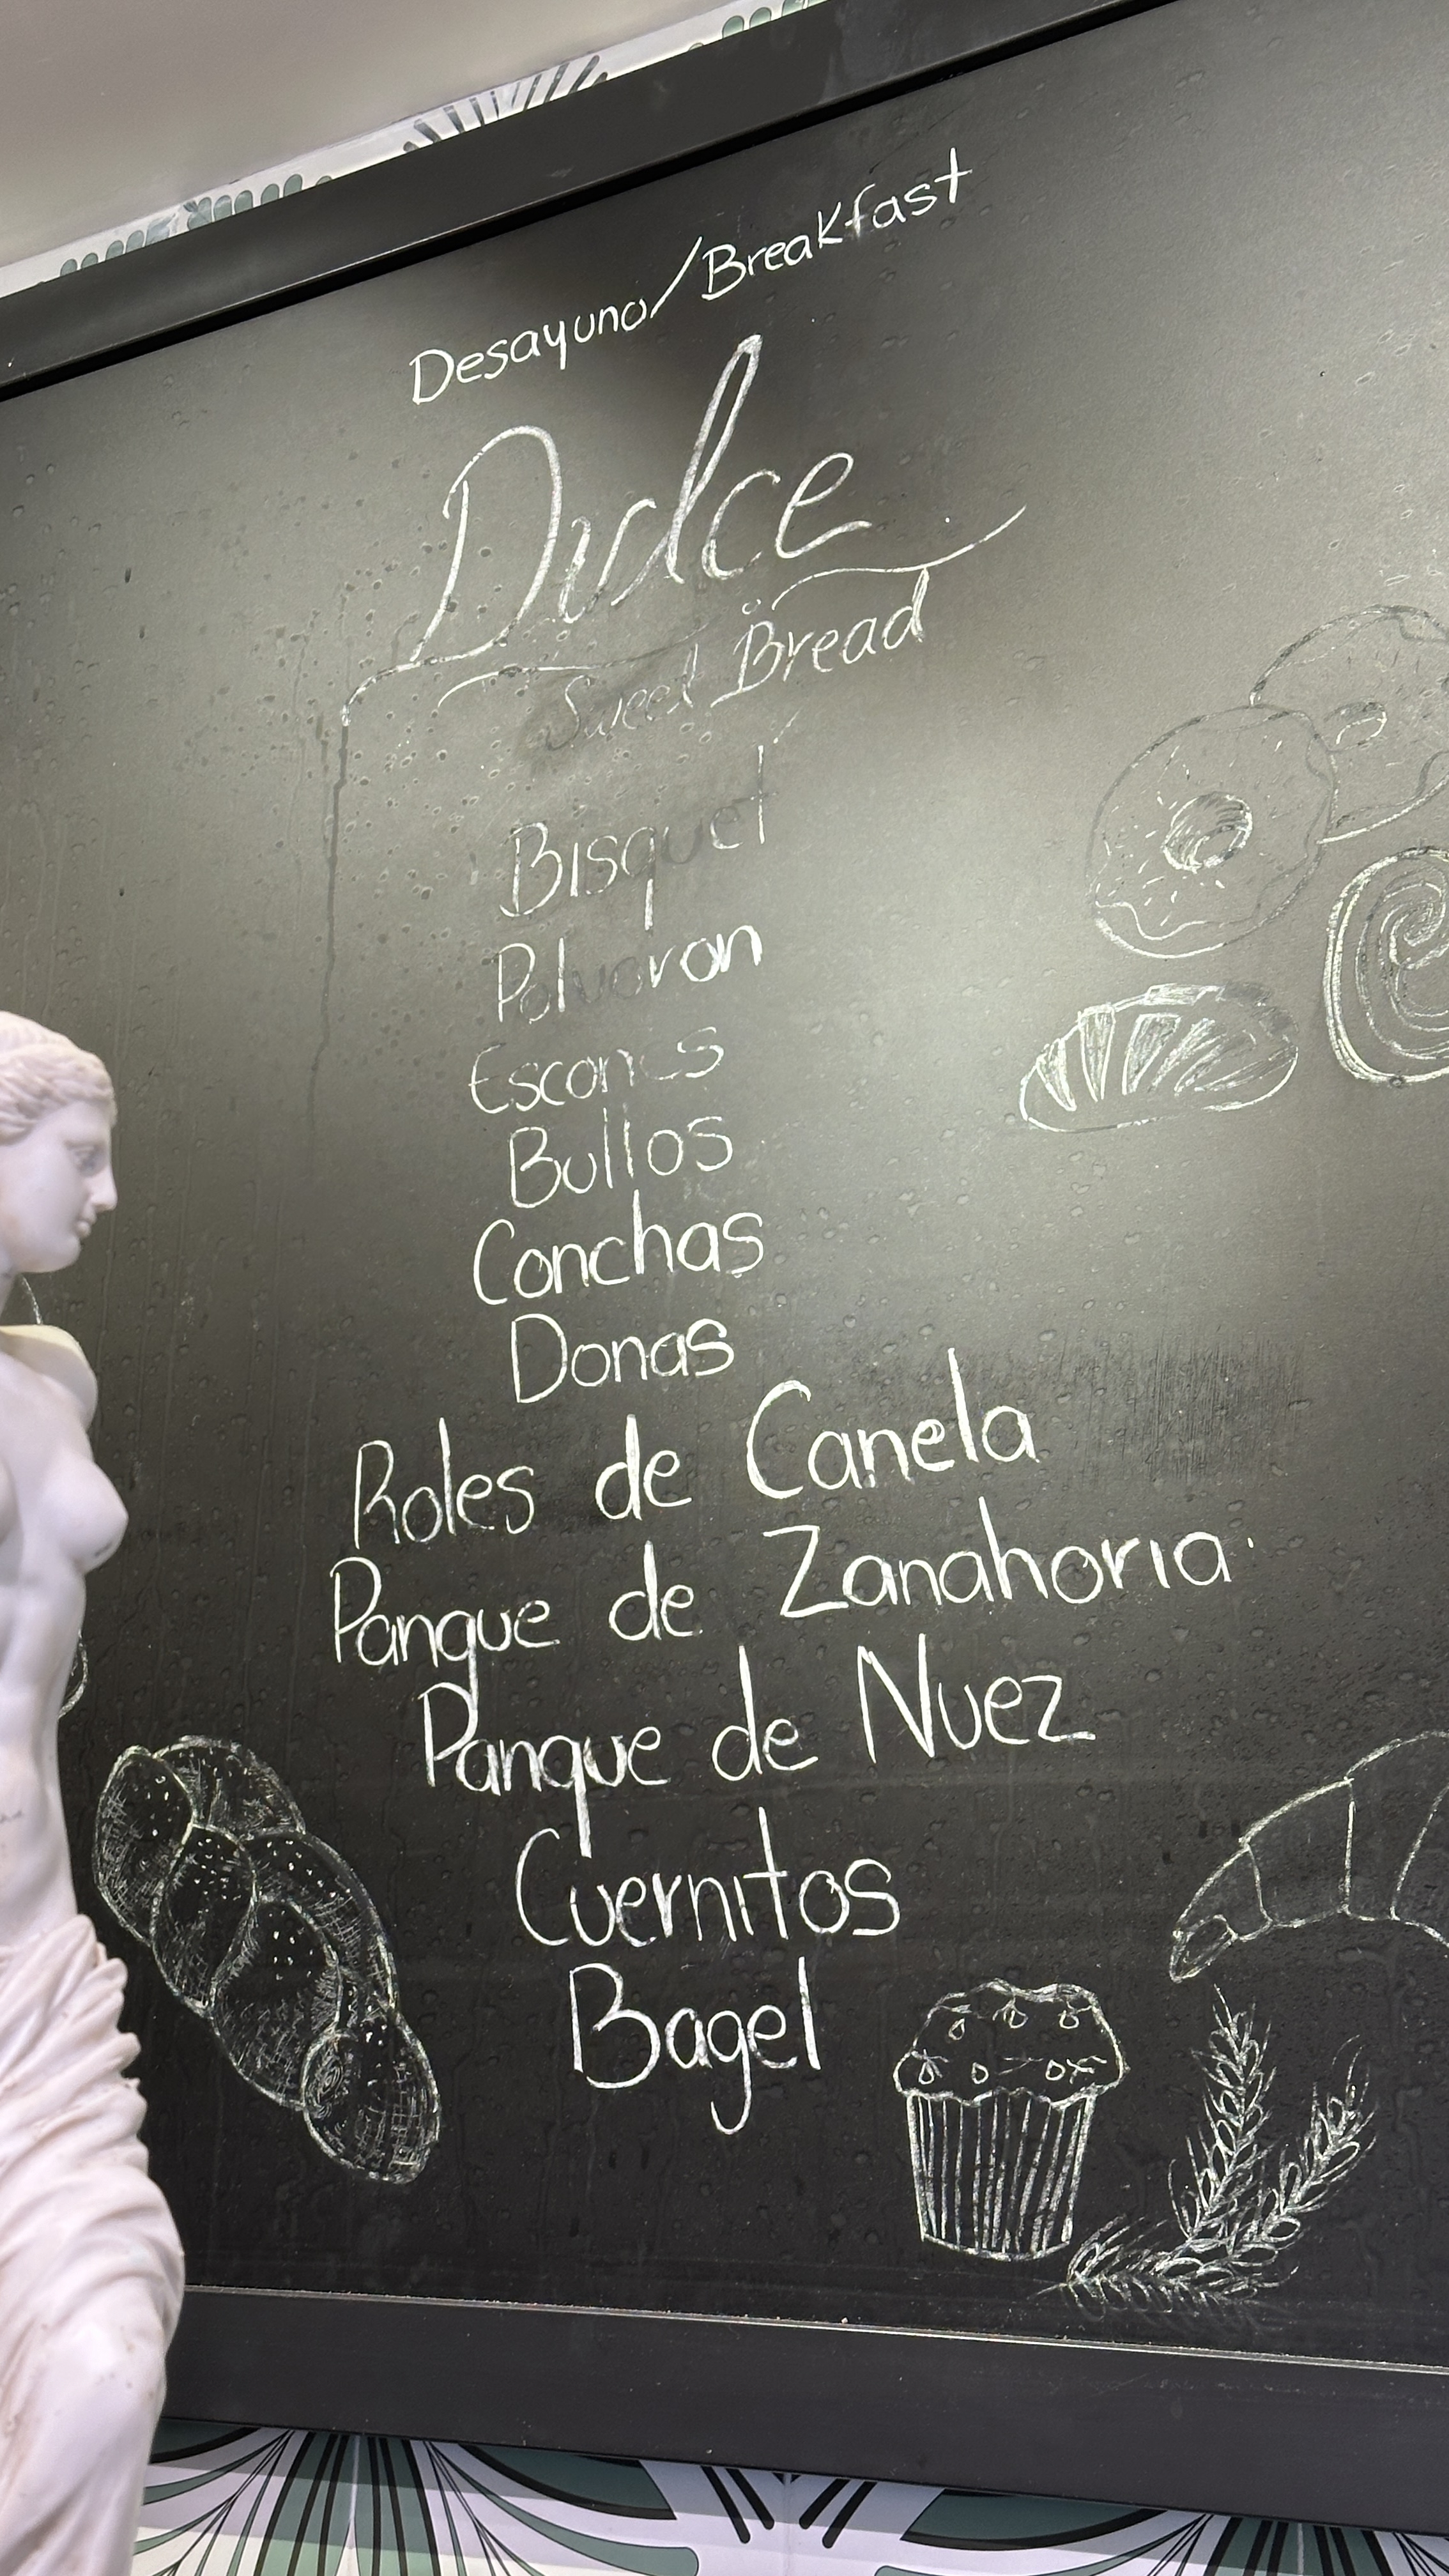 Desayuno/Breakfast
Dulce
Sweet Bread
Bisquet
Polvoron
Escones
Bullos
Conchas
Donas
Roles de Canela
Panque de Zanahoria
Panque de Nuez
Cuernitos
Bagel